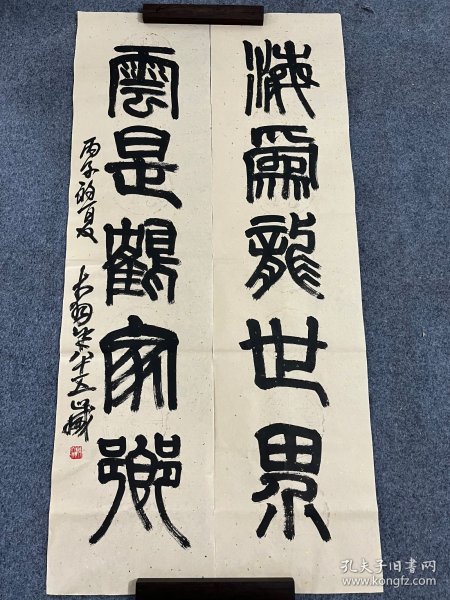 海為龍世界
雲是鶴家鄉
丙子初夏
八十五歲
孔夫子旧书网
www.kongfz.com